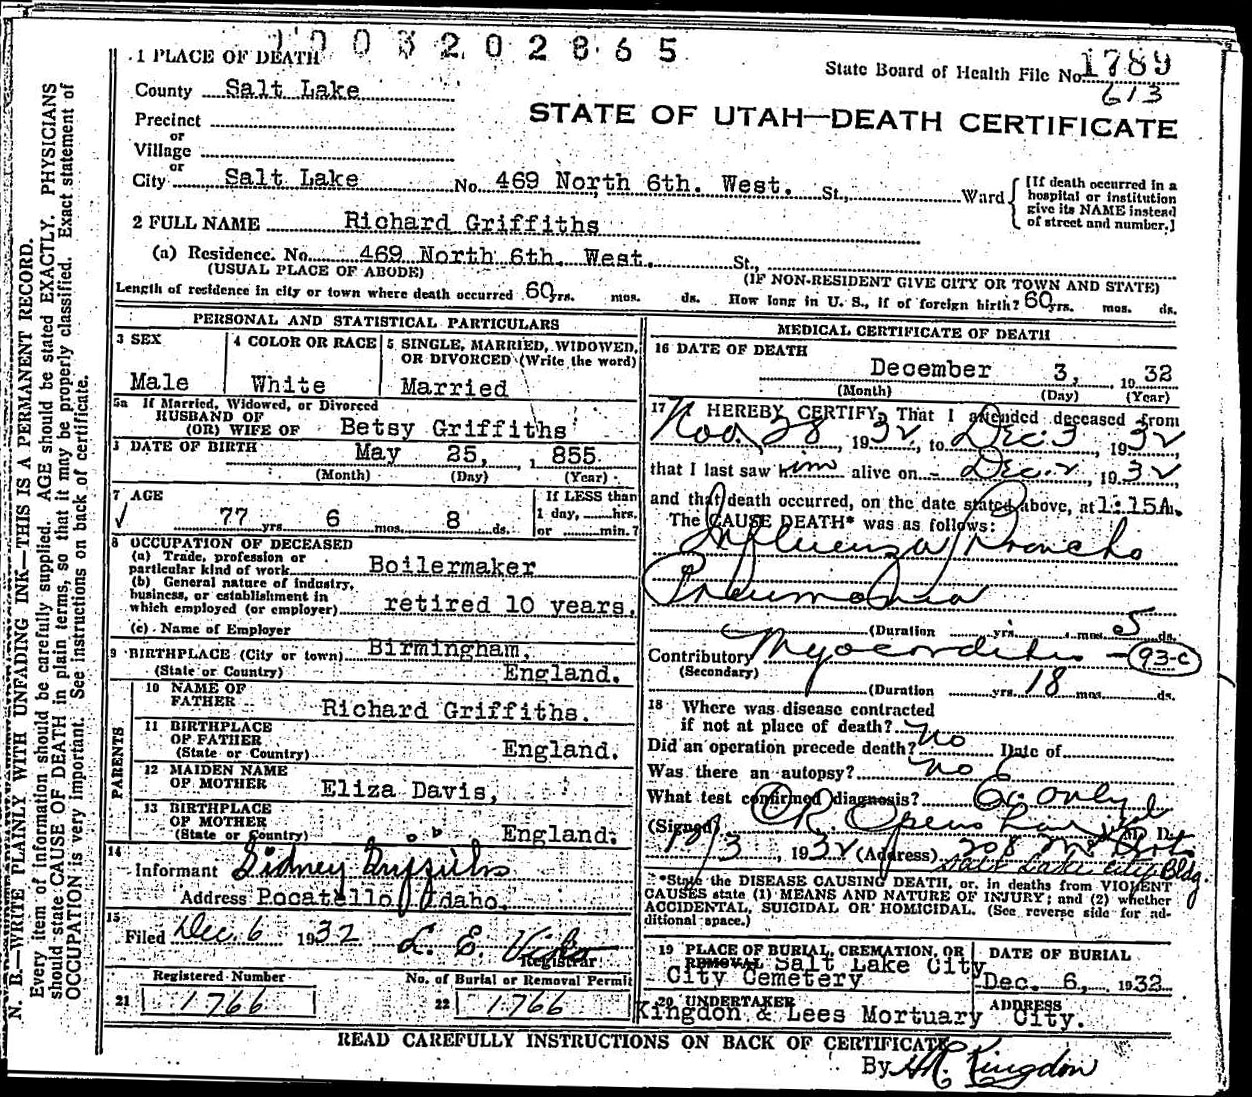 1003202865
1 PLACE OF DEATH
State Board of Health File No. 1789
613
County Salt Lake
STATE OF UTAH—DEATH CERTIFICATE
Precinct
or
Village
or
City Salt Lake No. 469 North 6th. West. St., Ward
[If death occurred in a hospital or institution give its NAME instead of street and number.]
2 FULL NAME Richard Griffiths
(a) Residence. No. 469 North 6th. West. St.,
(USUAL PLACE OF ABODE) (IF NON-RESIDENT GIVE CITY OR TOWN AND STATE)
Length of residence in city or town where death occurred 60 yrs. mos. ds. How long in U. S., if of foreign birth? 60 yrs. mos. ds.
PERSONAL AND STATISTICAL PARTICULARS
3 SEX 4 COLOR OR RACE 5 SINGLE, MARRIED, WIDOWED,
OR DIVORCED (Write the word)
Male White Married
5a If Married, Widowed, or Divorced
HUSBAND OF
(OR) WIFE OF Betsy Griffiths
DATE OF BIRTH May 25, , 855
(Month) (Day) (Year)
7 AGE If LESS than
1 day, hrs.
77 yrs. 6 mos. 8 ds. or min.?
8 OCCUPATION OF DECEASED
(a) Trade, profession or
particular kind of work Boilermaker
(b) General nature of industry,
business, or establishment in
which employed (or employer) retired 10 years.
(c) Name of Employer
9 BIRTHPLACE (City or town) Birmingham.
(State or Country) England.
PARENTS
10 NAME OF
FATHER Richard Griffiths.
11 BIRTHPLACE
OF FATHER
(State or Country) England.
12 MAIDEN NAME
OF MOTHER Eliza Davis,
13 BIRTHPLACE
OF MOTHER
(State or Country) England.
14
Informant Sidney Griffiths
Address Pocatello, Idaho.
15
Filed Dec. 6 1932 L. E.
Registrar
Registered Number No. of Burial or Removal Permit
21 1766 22 1766
MEDICAL CERTIFICATE OF DEATH
16 DATE OF DEATH
December 3, , 1932
(Month) (Day) (Year)
17 I HEREBY CERTIFY, That I attended deceased from
Nov. 28 1932, to Dec. 3, 1932
that I last saw him alive on Dec. 2, 1932
and that death occurred, on the date stated above, at 1:15A.
The CAUSE DEATH* was as follows:
Influenza Broncho
Pneumonia
(Duration yrs. mos. 5 ds.
Contributory Myocarditis – 93-c
(Secondary)
(Duration yrs. 18 mos. ds.
18 Where was disease contracted
if not at place of death?
Did an operation precede death? no Date of
Was there an autopsy? no
What test confirmed diagnosis? only
(Signed) M. D.
12/3, 1932 (Address) 208
Salt Lake City Bldg.
*State the DISEASE CAUSING DEATH, or, in deaths from VIOLENT
CAUSES state (1) MEANS AND NATURE OF INJURY; and (2) whether
ACCIDENTAL, SUICIDAL OR HOMICIDAL. (See reverse side for ad-
ditional space.)
19 PLACE OF BURIAL, CREMATION, OR DATE OF BURIAL
REMOVAL Salt Lake City
City Cemetery Dec. 6, 1932
20 UNDERTAKER ADDRESS
Kingdon & Lees Mortuary City.
READ CAREFULLY INSTRUCTIONS ON BACK OF CERTIFICATE
By Kingdon
N. B.—WRITE PLAINLY WITH UNFADING INK—THIS IS A PERMANENT RECORD.
Every item of information should be carefully supplied. AGE should be stated EXACTLY. PHYSICIANS
should state CAUSE OF DEATH in plain terms, so that it may be properly classified. Exact statement of
OCCUPATION is very important. See instructions on back of certificate.